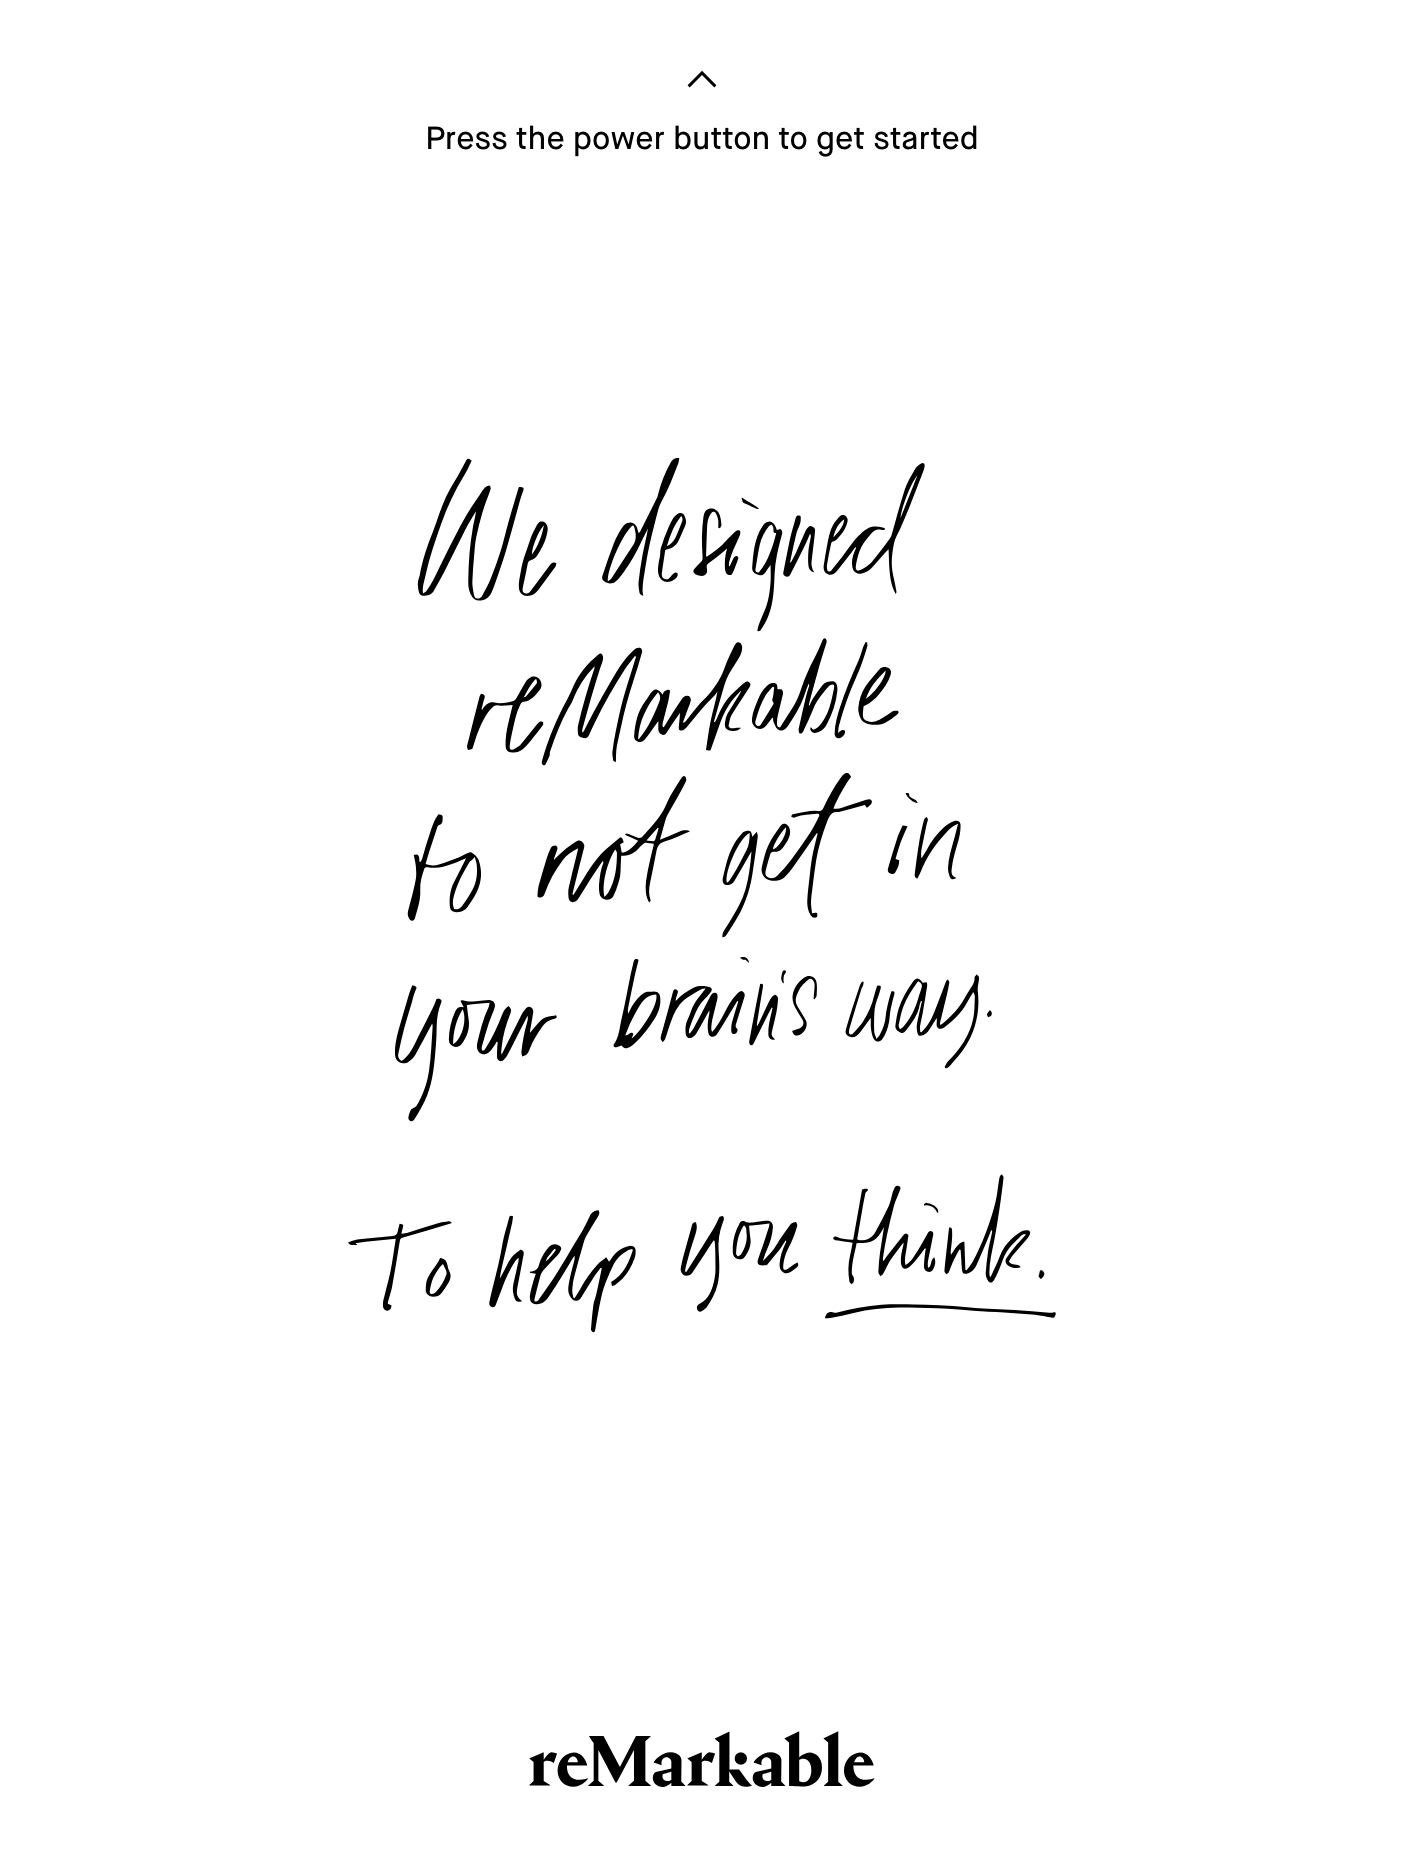 Press the power button to get started
We designed
reMarkable
to not get in
your brain's way.
To help you think.
reMarkable